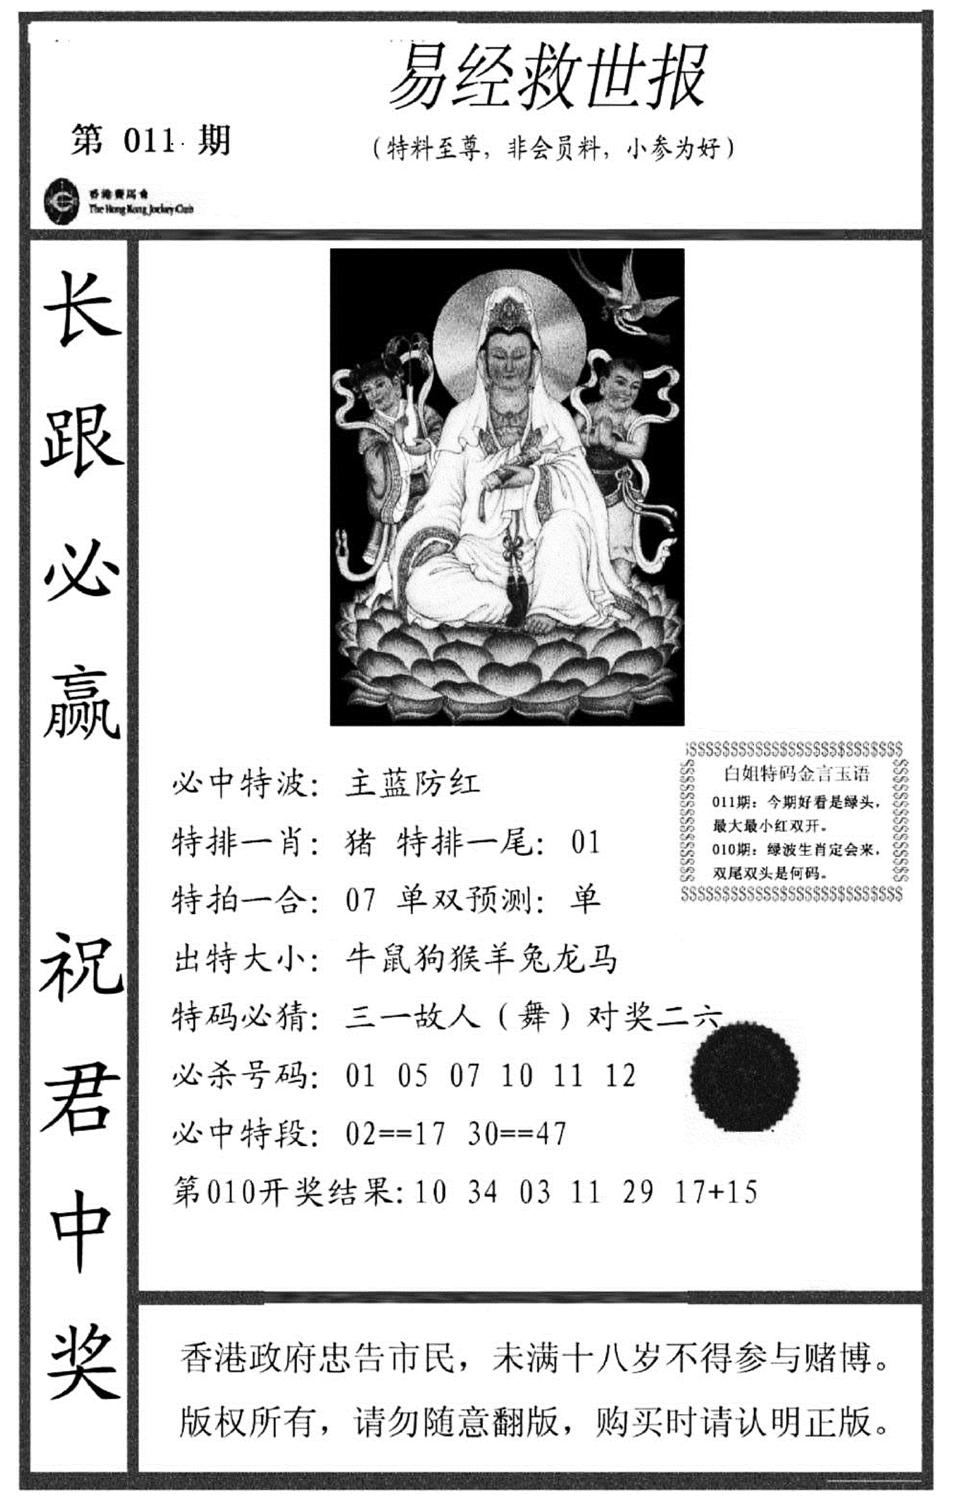 易经救世报
第 011 期
（特料至尊，非会员料，小参为好）
香港賽馬會
The Hong Kong Jockey Club
长跟必赢 祝君中奖
必中特波：主蓝防红
特排一肖：猪 特排一尾：01
特拍一合：07 单双预测：单
出特大小：牛鼠狗猴羊兔龙马
特码必猜：三一故人（舞）对奖二六
必杀号码：01 05 07 10 11 12
必中特段：02==17 30==47
第010开奖结果:10 34 03 11 29 17+15
$$$$$$$$$$$$$$$$$$$$$$$$$$
白姐特码金言玉语
011期：今期好看是绿头，
最大最小红双开。
010期：绿波生肖定会来，
双尾双头是何码。
$$$$$$$$$$$$$$$$$$$$$$$$$$
香港政府忠告市民，未满十八岁不得参与赌博。
版权所有，请勿随意翻版，购买时请认明正版。